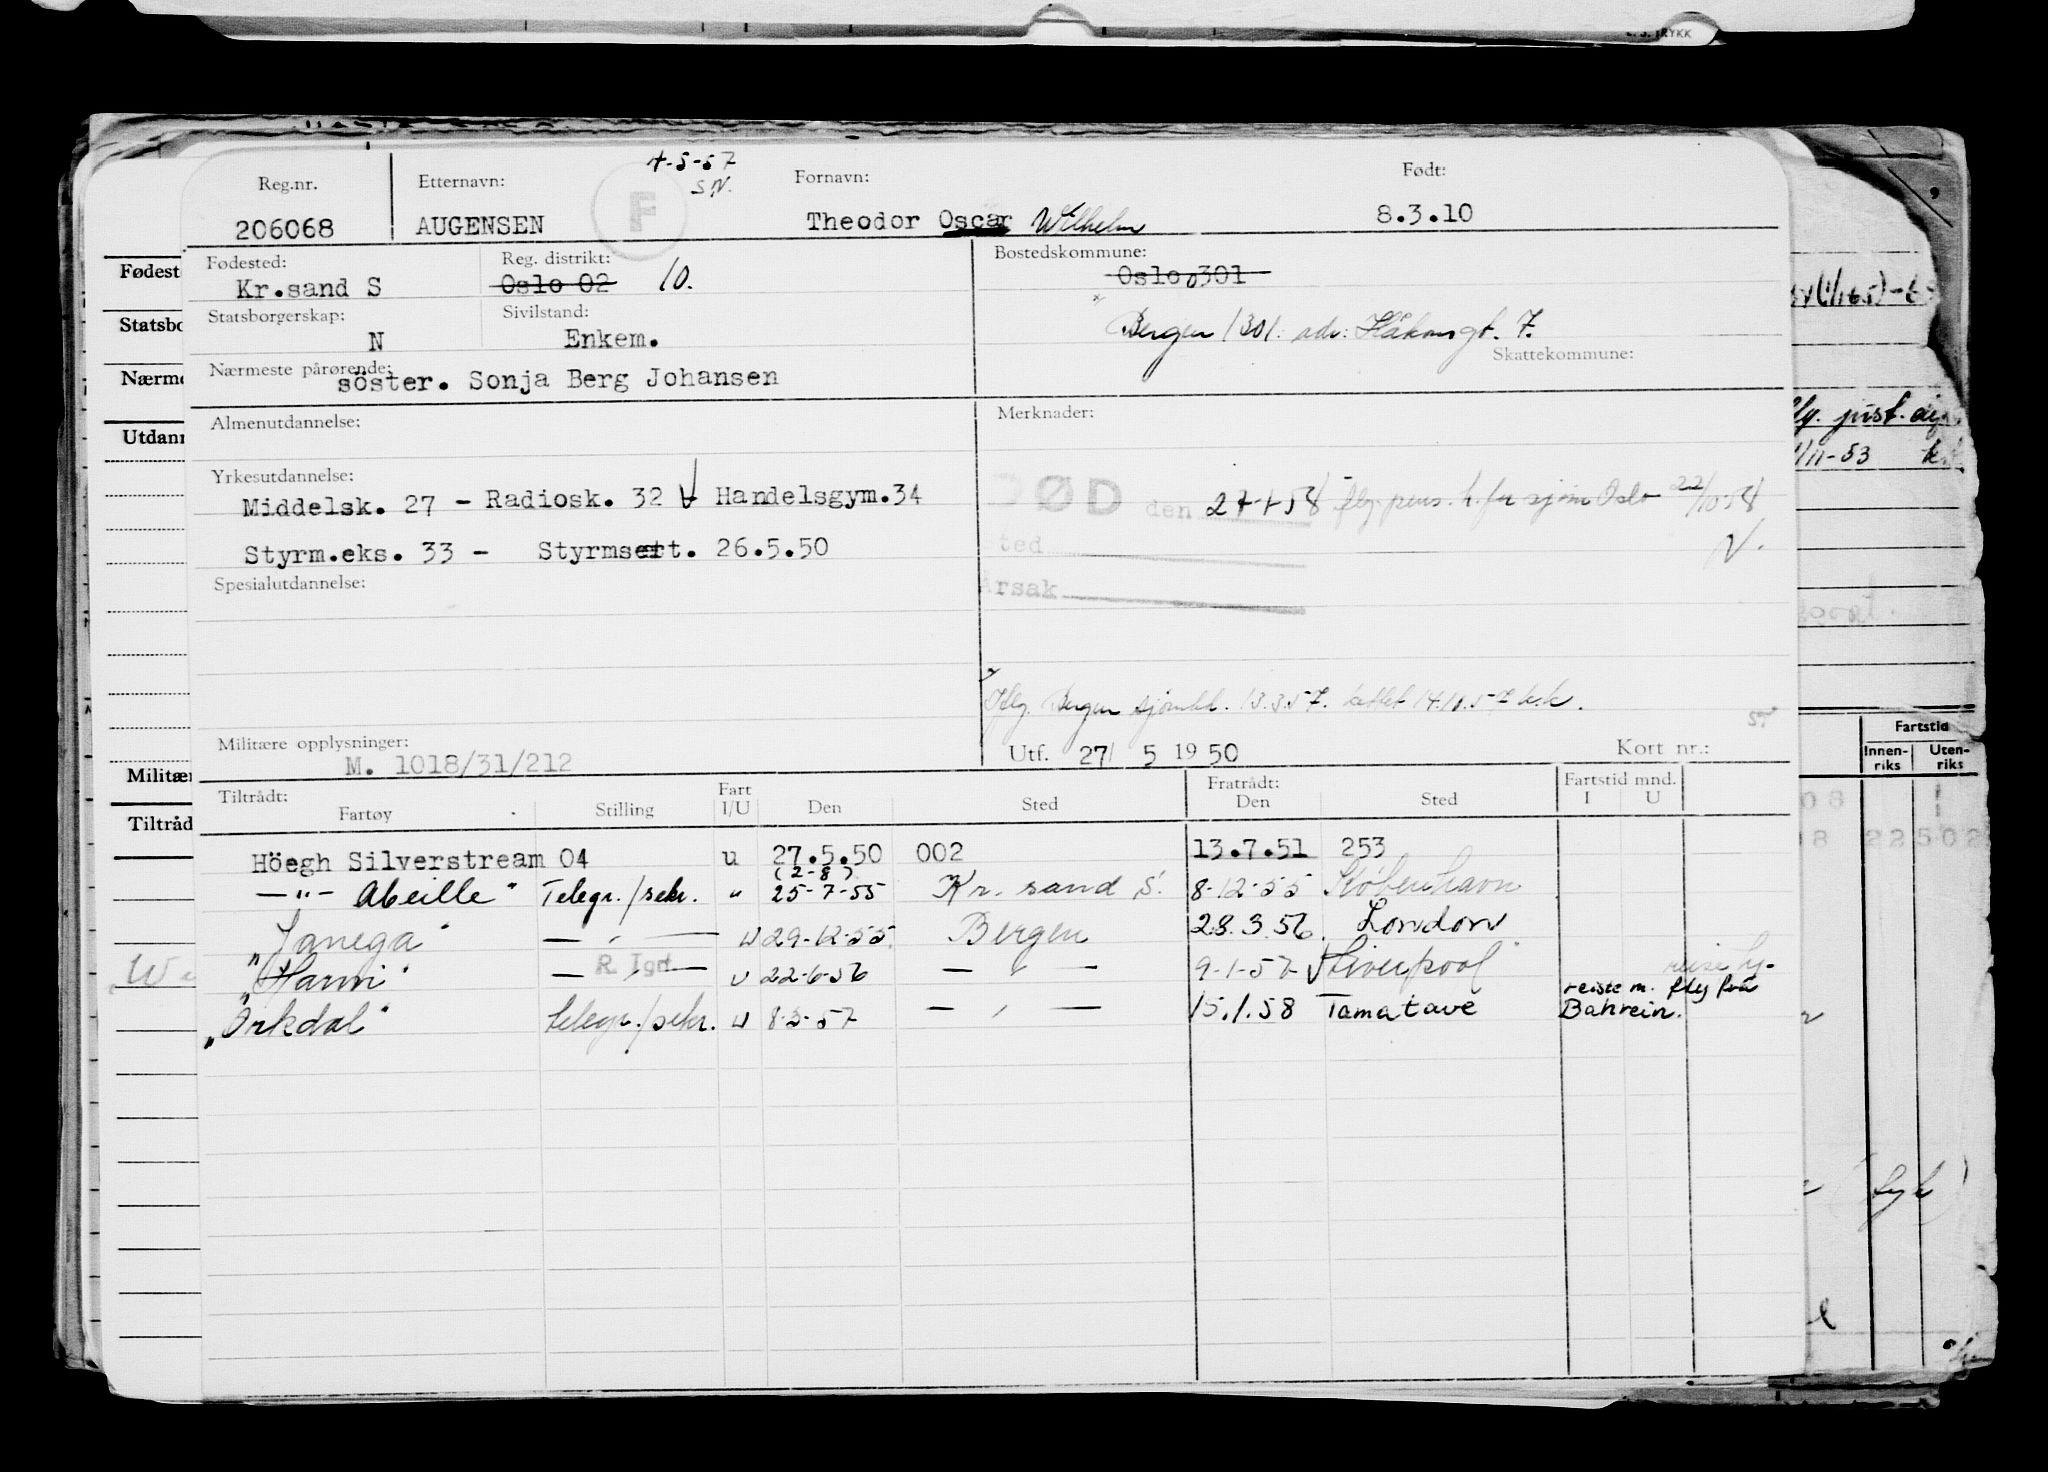 4-5-57
S.N.
Reg.nr. Etternavn: F Fornavn: Født:
206068 AUGENSEN Theodor Oscar Wilhelm 8.3.10
Fødested: Reg. distrikt: Bostedskommune:
Kr.sand S Oslo 02 10. Oslo 0301
Statsborgerskap: Sivilstand:
N Enkem. Bergen 1301: adr: Håkonsgt. 7.
Skattekommune:
Nærmeste pårørende:
söster. Sonja Berg Johansen
Almenutdannelse: Merknader:
Yrkesutdannelse:
Middelsk. 27 - Radiosk. 32 Handelsgym.34
ØD den flg. pens. h. for sjøm Oslo 22/10-58
N.
Styrm.eks. 33 - Styrmsert. 26.5.50
sted
Årsak
Spesialutdannelse:
Iflg. Bergen sjømkt. 13.3.57.
Militære opplysninger:
M. 1018/31/212
Utf. 27/ 5 1950 Kort nr.:
Tiltrådt: Fratrådt: Fartstid mnd.
Fartøy Stilling Fart I/U Den Sted Den Sted I U
Höegh Silverstream 04 u 27.5.50 002 13.7.51 253
(2-8)
—"— Abeille" Telegr./sekr. " 25-7-55 Kr. sand S. 8-12-55 København
"Janega" — " — u 29-12-55 Bergen 28.3.56. London
"Hanvi" — " — R. Tgrf u 22-6-56 — " — 9-1-57 Liverpool
"Orkdal" telegr./sekr. u 8-3-57 — " — 15.1.58 Tamatave reiste m. fly fra Bahrein.
Fødest
Statsbo
Nærme
Utdann
Militær
Tiltråd
Fartstid
Innen-riks Uten-riks
22502
just.
/11-53